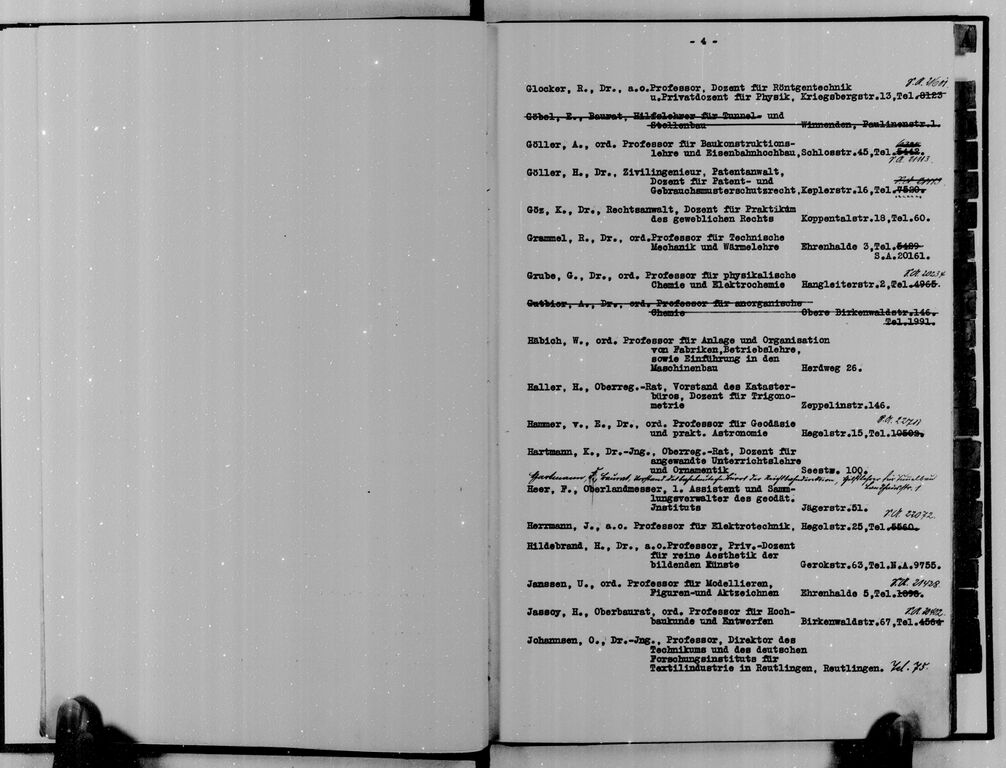 - 4 -
S.A. 21601
Glocker, R., Dr., a.o.Professor, Dozent für Röntgentechnik
u.Privatdozent für Physik, Kriegsbergstr.13,Tel.8123
Göbel, E., Baurat, Hilfslehrer für Tunnel- und
Stollenbau Winnenden, Paulinenstr.1.
Göller, A., ord. Professor für Baukonstruktions-
lehre und Eisenbahnhochbau,Schlosstr.45,Tel.5442.
S.A. 21113
Göller, H., Dr., Zivilingenieur, Patentanwalt,
Dozent für Patent- und
Gebrauchsmusterschutzrecht,Keplerstr.16,Tel.7520.
Göz, K., Dr., Rechtsanwalt, Dozent für Praktikum
des geweblichen Rechts Koppentalstr.18,Tel.60.
Grammel, R., Dr., ord.Professor für Technische
Mechanik und Wärmelehre Ehrenhalde 3,Tel.5489
S.A.20161.
Grube, G., Dr., ord. Professor für physikalische
Chemie und Elektrochemie Hangleiterstr.2,Tel.4965.
Gutbier, A., Dr., ord. Professor für anorganische
Chemie Obere Birkenwaldstr.146.
Tel.1991.
Häbich, W., ord. Professor für Anlage und Organisation
von Fabriken,Betriebslehre,
sowie Einführung in den
Maschinenbau Herdweg 26.
Haller, H., Oberreg.-Rat, Vorstand des Kataster-
büros, Dozent für Trigono-
metrie Zeppelinstr.146.
Hammer, v., E., Dr., ord. Professor für Geodäsie
und prakt. Astronomie Hegelstr.15,Tel.
Hartmann, K., Dr.-Jng., Oberreg.-Rat, Dozent für
angewandte Unterrichtslehre
und Ornamentik Seestw. 100.
Baurat, Vorstand des der Hilfslehrer für Tunnelbau
Heer, F., Oberlandmesser, 1. Assistent und Samm-
lungsverwalter des geodät.
Jnstituts Jägerstr.51.
S.A. 22072.
Herrmann, J., a.o. Professor für Elektrotechnik, Hegelstr.25,Tel.5560.
Hildebrand, H., Dr., a.o.Professor, Priv.-Dozent
für reine Aesthetik der
bildenden Künste Gerokstr.63,Tel.N.A.9755.
S.A. 21428.
Janssen, U., ord. Professor für Modellieren,
Figuren-und Aktzeichnen Ehrenhalde 5,Tel.1898.
Jassoy, H., Oberbaurat, ord. Professor für Hoch-
baukunde und Entwerfen Birkenwaldstr.67,Tel.4564
Johannsen, O., Dr.-Jng., Professor, Direktor des
Technikums und des deutschen
Forschungsinstituts für
Textilindustrie in Reutlingen, Reutlingen. Tel. 75.